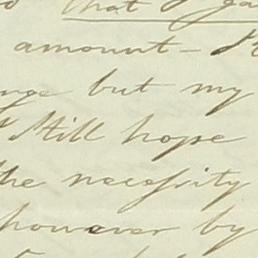 that I ga
amount - I
nge but my
I Still hope
the necessity
however by